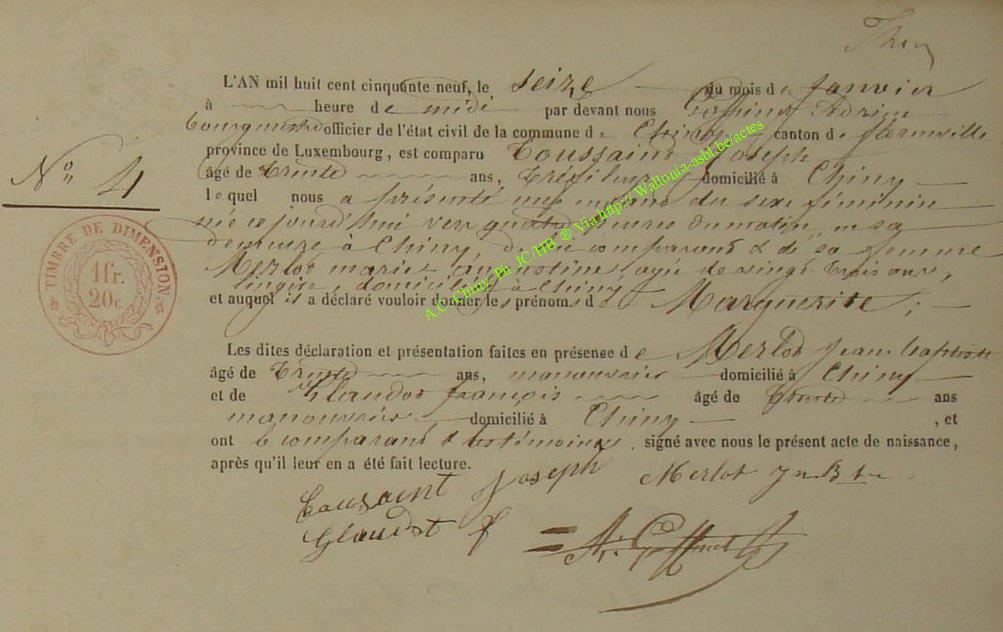 L'AN mil huit cent cinquante neuf, le seize du mois de janvier
à heure de midi par devant nous Goffinet Adrien
Bourgmestre officier de l'état civil de la commune de Chiny canton de florenville
province de Luxembourg, est comparu Toussaint Joseph
N° 4
âgé de Trente ans, Tréfileur domicilié à Chiny
lequel nous a présenté une enfant du sexe féminin
née ce jourd'hui vers quatre heures du matin, en sa
demeure à Chiny de lui comparant & de sa femme
Merlot marie agée de vingt trois ans,
lingère, domiciliée à Chiny
et auquel il a déclaré vouloir donner les prénoms de Marguerite;
TIMBRE DE DIMENSION
1 fr. 20c.
A.C. Chiny Ph. JC/HB ® Via http://Wallonia-asbl.be/actes
Les dites déclaration et présentation faites en présence de Merlot Jean-baptiste
âgé de Trente ans, manouvrier domicilié à Chiny
et de Glaudot françois âgé de Trente ans
manouvrier domicilié à Chiny, et
ont le comparant & les témoins signé avec nous le présent acte de naissance,
après qu'il leur en a été fait lecture.
Toussaint Joseph Merlot Jn Bte
Glaudot f A. Goffinet